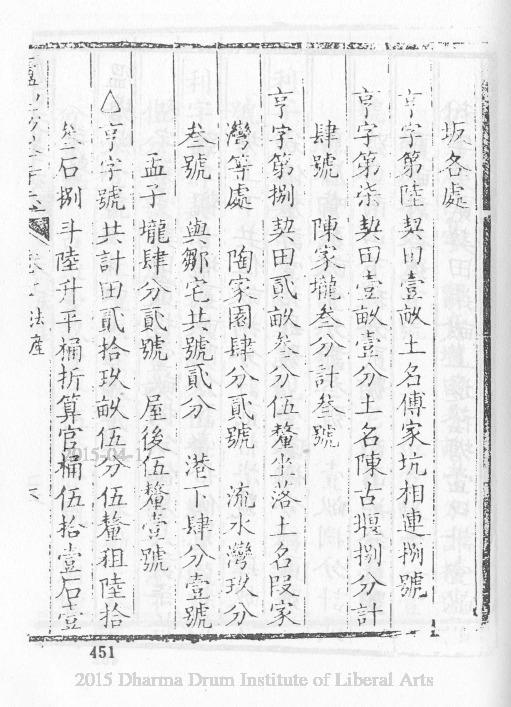 坂各處
亨字第陸契田壹畝土名傅家坑相連捌號
亨字第柒契田壹畝壹分土名陳古堰捌分計
肆號　陳家壠叁分計叁號
亨字第捌契田貳畝叁分伍釐坐落土名段家
灣等處　陶家園肆分貳號　流水灣玖分
叁號　與鄒宅共號貳分　港下肆分壹號
孟子壠肆分貳號　屋後伍釐壹號
△亨字號共計田貳拾玖畝伍分伍釐租陸拾
叁石捌斗陸升平桶折算官桶伍拾壹石壹
法產
2015-04-17
451
2015 Dharma Drum Institute of Liberal Arts